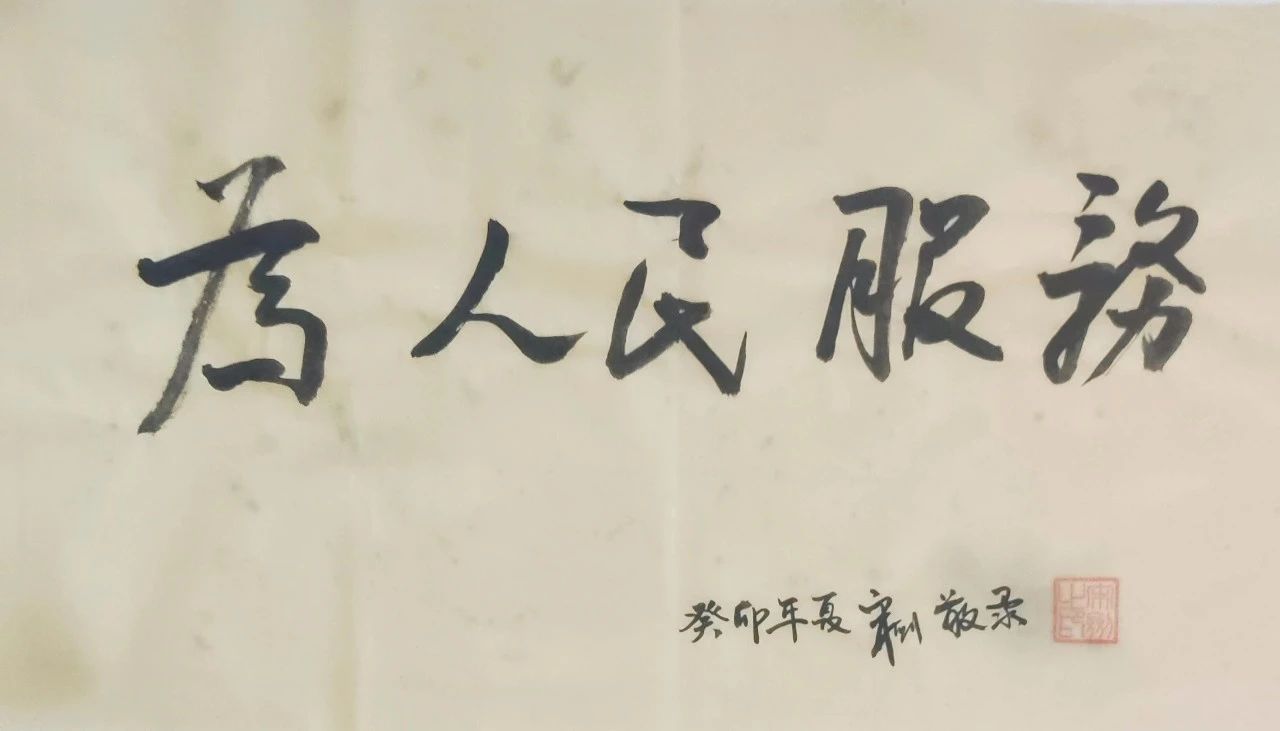 為人民服務
癸卯年夏 敬录